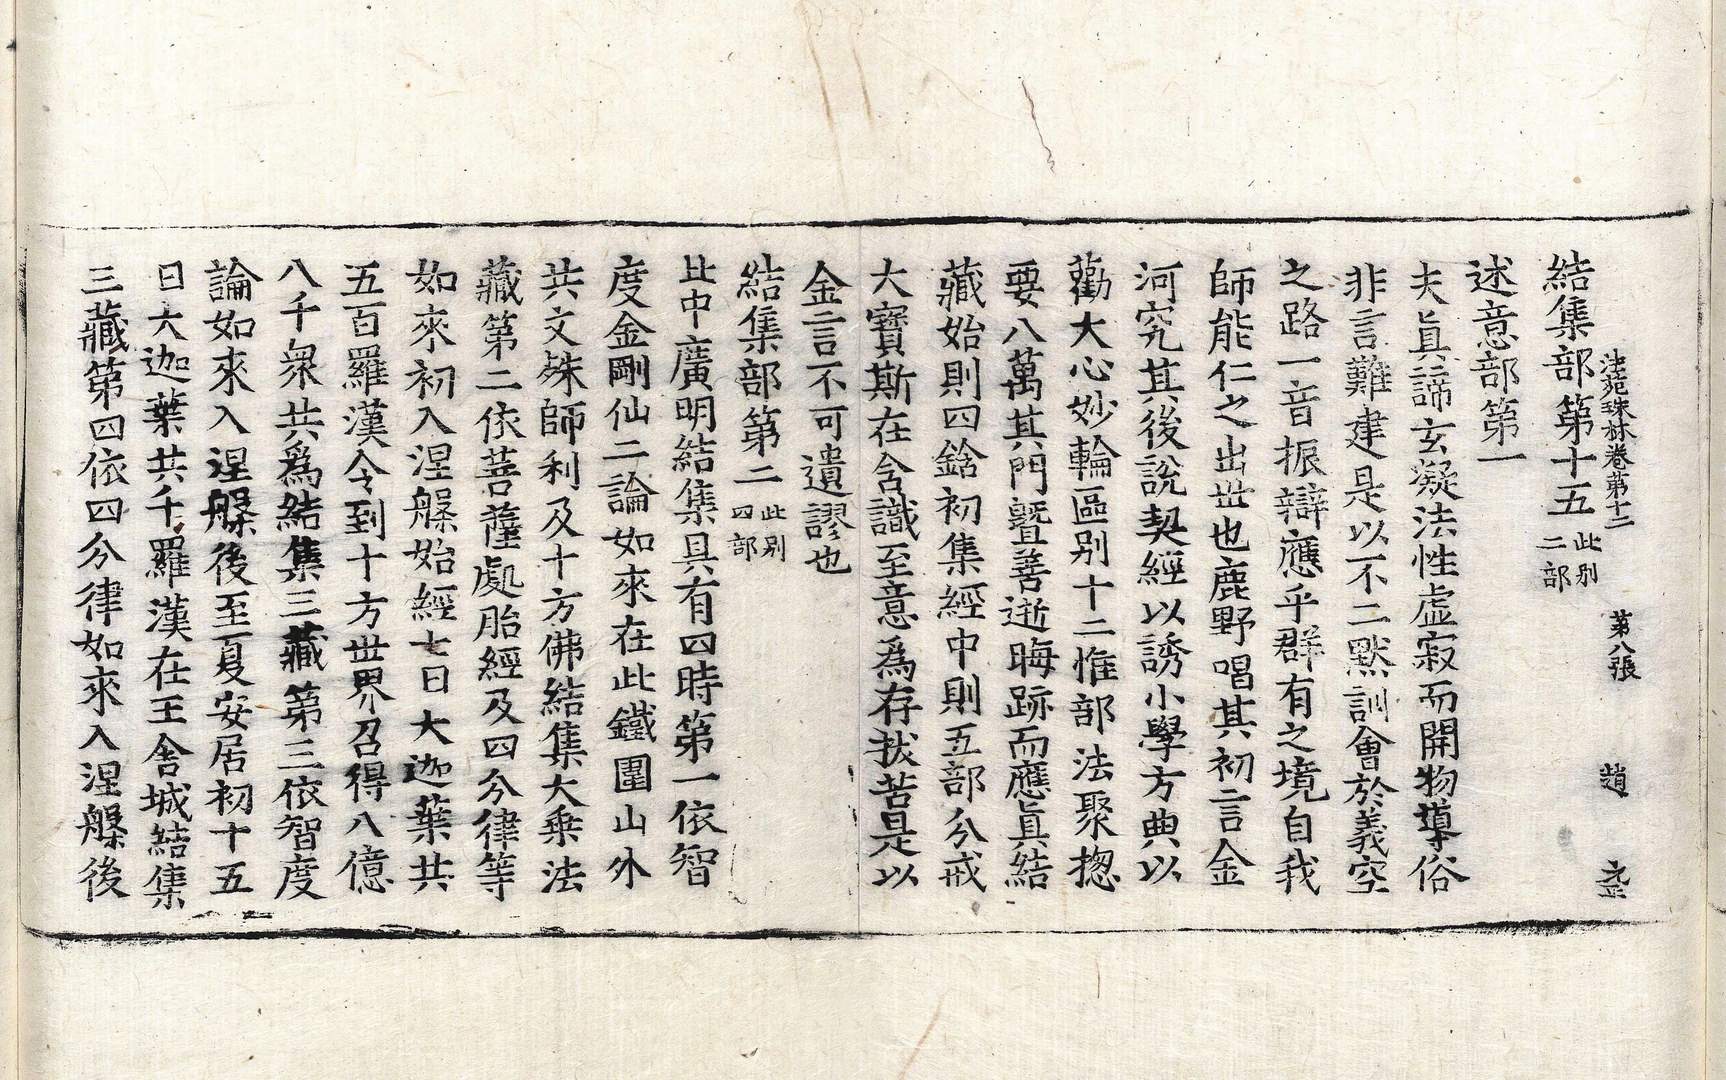 法苑珠林卷第十二 第八張 趙 元𠀋
結集部第十五 此別二部
述意部第一
夫眞諦玄凝法性虛寂而開物導俗
非言難建是以不二默訓會於義空
之路一音振辯應乎群有之境自我
師能仁之出世也鹿野唱其初言金
河究其後說契經以誘小學方典以
勸大心妙輪區别十二惟部法聚揔
要八萬其門曁善逝晦跡而應眞結
藏始則四鋡初集經中則五部分戒
大寶斯在含識至意爲存拔苦是以
金言不可遺謬也
結集部第二 此别四部
此中廣明結集具有四時第一依智
度金剛仙二論如來在此鐵圍山外
共文殊師利及十方佛結集大乘法
藏第二依菩薩處胎經及四分律等
如來初入涅槃始經七日大迦葉共
五百羅漢令到十方世界召得八億
八千衆共爲結集三藏第三依智度
論如來入涅槃後至夏安居初十五
日大迦葉共千羅漢在王舍城結集
三藏第四依四分律如來入涅槃後